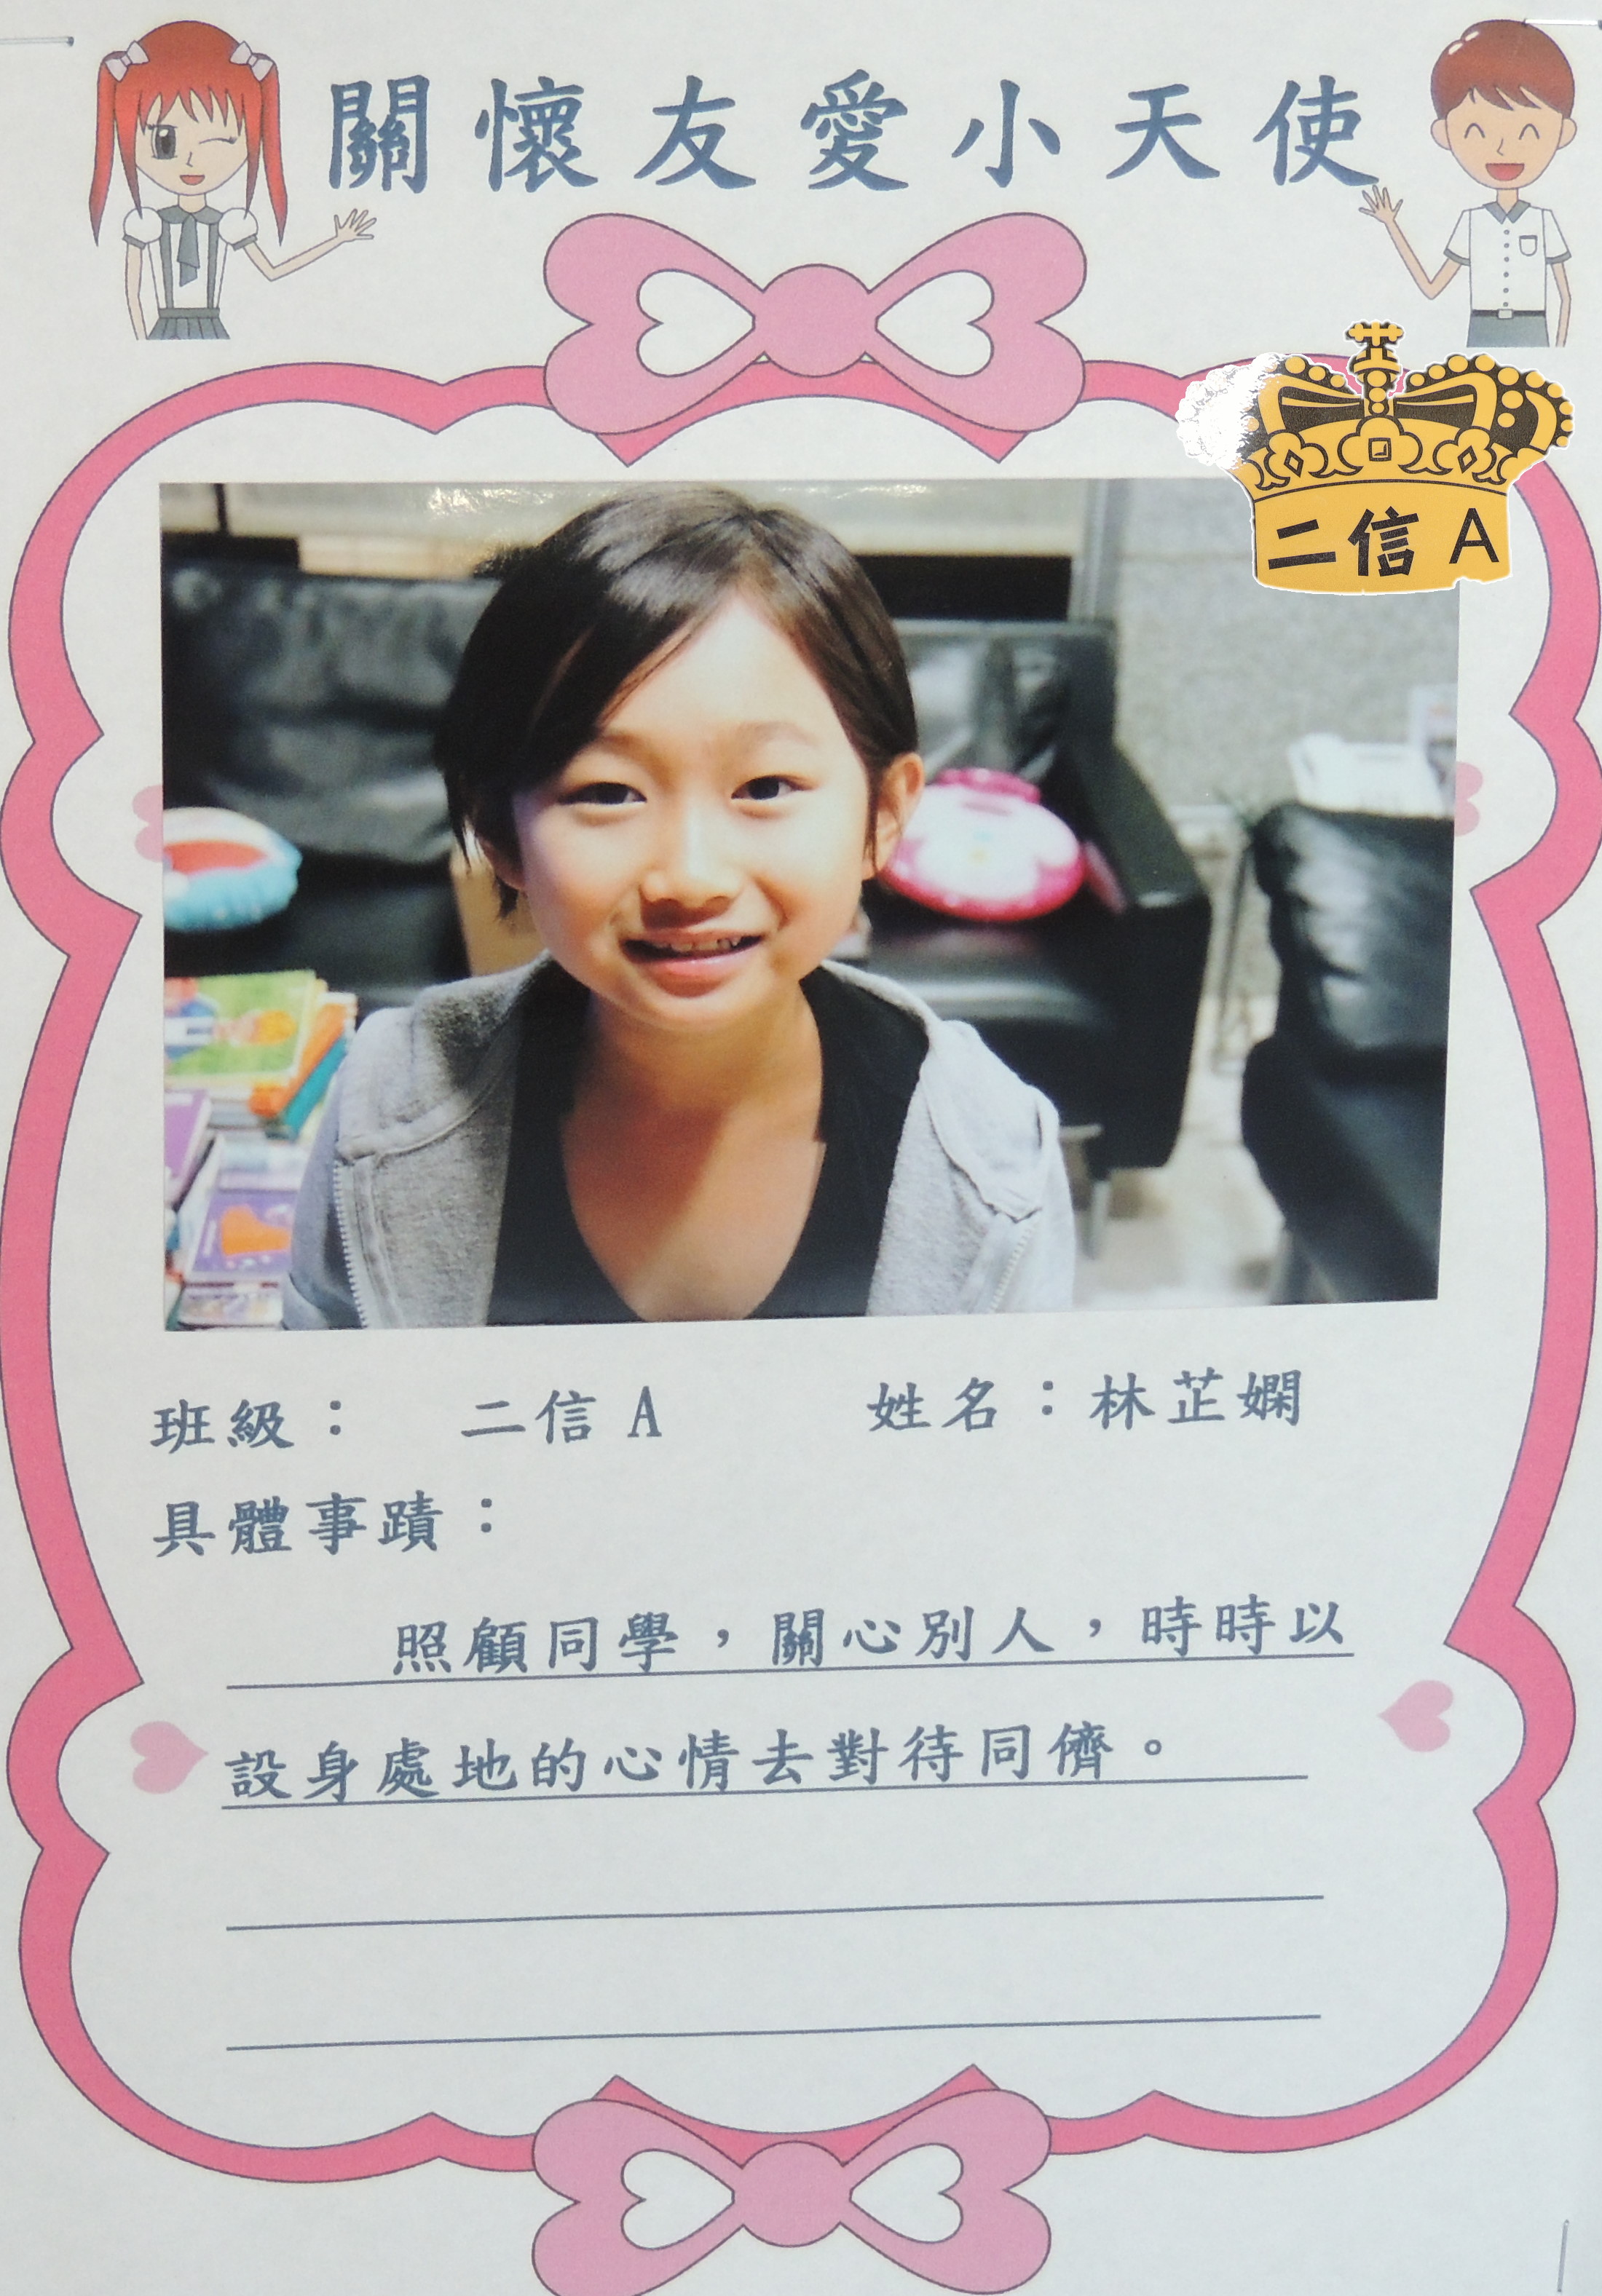 關懷友愛小天使
二信 A
班級： 二信 A 姓名：林芷嫻
具體事蹟：
照顧同學，關心別人，時時以
設身處地的心情去對待同儕。